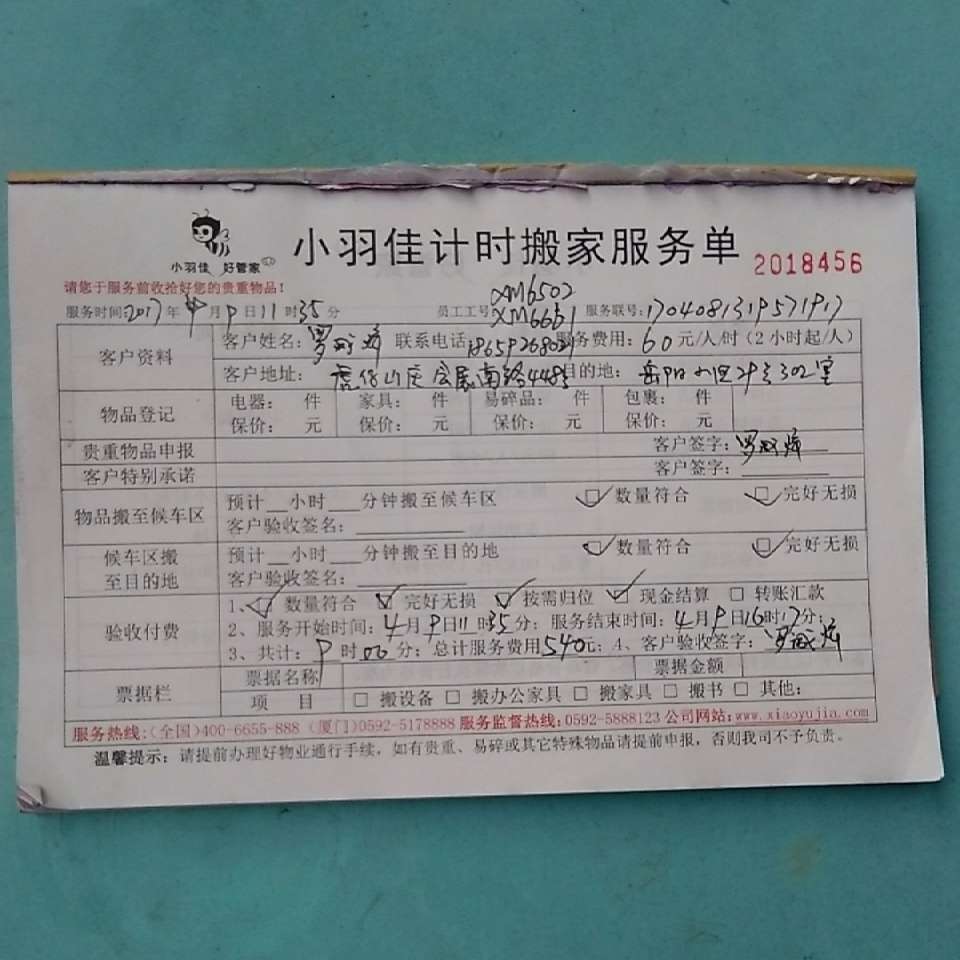 小羽佳 好管家
小羽佳计时搬家服务单 2018456
请您于服务前收拾好您的贵重物品！
服务时间:2017年4月9日11时35分 员工工号 XM6502 XM6661 服务联号:
客户资料 客户姓名: 联系电话: 服务费用:60元/人/时（2小时起/人）
客户地址: 虎仔山庄会展南路448号 目的地: 岳阳小区29号302室
物品登记 电器: 件 家具: 件 易碎品: 件 包裹: 件
保价: 元 保价: 元 保价: 元 保价: 元
贵重物品申报 客户签字:
客户特别承诺 客户签字:
物品搬至候车区 预计__小时___分钟搬至候车区 数量符合 完好无损
客户验收签名:
候车区搬至目的地 预计__小时___分钟搬至目的地 数量符合 完好无损
客户验收签名:
验收付费 1、 数量符合 完好无损 按需归位 现金结算 转账汇款
2、服务开始时间: 4月9日11时35分; 服务结束时间: 4月9日16时17分;
3、共计: 9时00分; 总计服务费用540元; 4、客户验收签字:
票据栏 票据名称 票据金额
项 目 搬设备 搬办公家具 搬家具 搬书 其他:
服务热线:(全国)400-6655-888 (厦门)0592-5178888 服务监督热线:0592-5888123 公司网站:www.xiaoyujia.com
温馨提示: 请提前办理好物业通行手续，如有贵重、易碎或其它特殊物品请提前申报，否则我司不予负责。